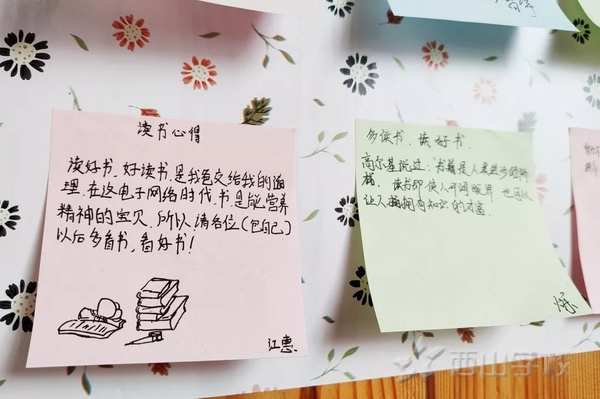 读书心得
读好书、好读书,是我爸交给我的道
理,在这电子网络时代,书是能营养
精神的宝贝,所以,请各位(包自己)
以后多看书,看好书!
江惠
多读书、读好书
高尔基说过:书籍是人类进步的阶
梯,读书即使人开阔眼界,也可以
让人拥有知识的才富。
西山学校